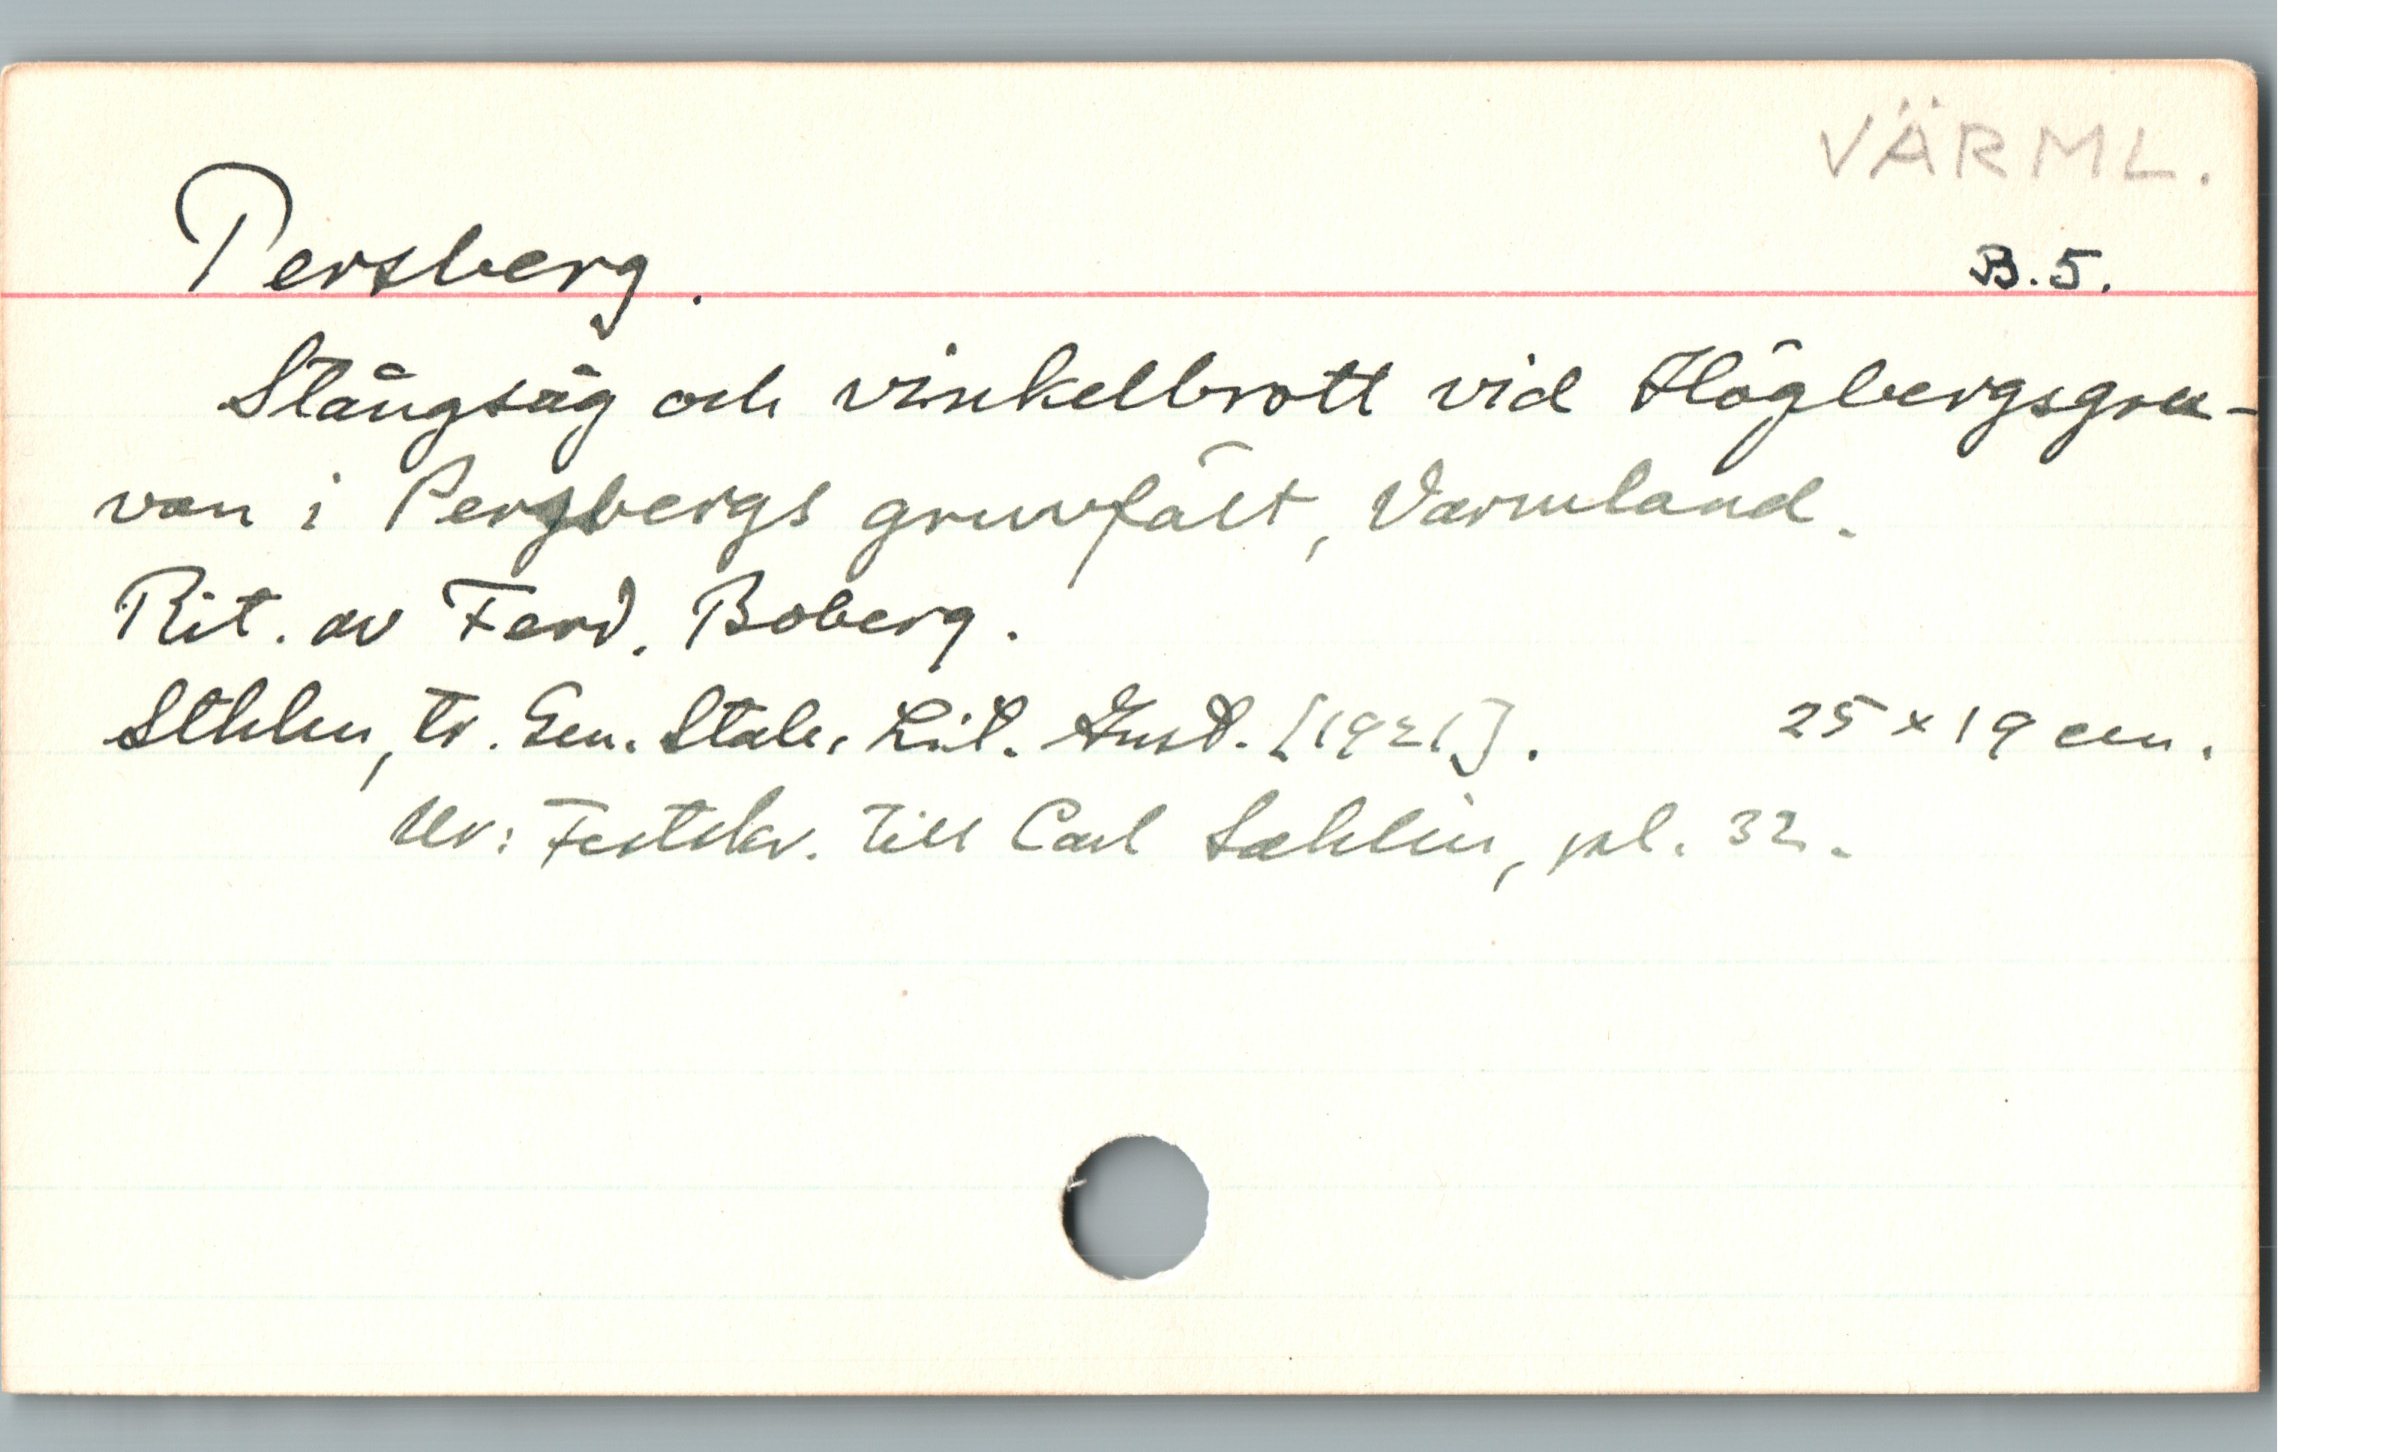 VÄRML.
Persberg.
B.5.
Stångsåg och vinkelbrott vid Högbergsgru-
van i Persbergs gruvfält, Värmland.
Rit. av Ferd. Boberg.
Sthlm, tr. Gen. Stab. Lit. Anst. [1921]. 25 x 19 cm.
Ur: Festskr. till Carl Sahlin, pl. 32.